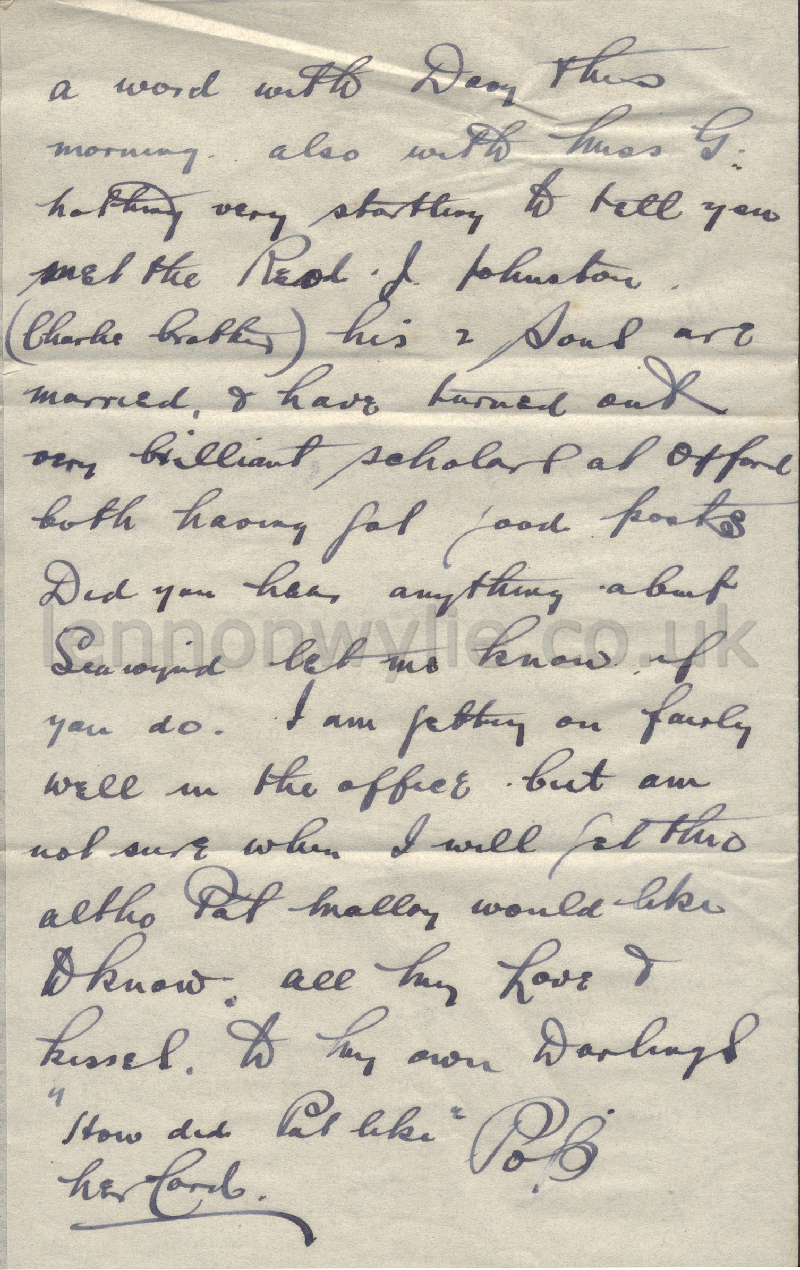 a word with Davy this
morning. also with Miss G.
nothing very startling to tell you
met the Revd. J. Johnston.
(Charlie brother) his 2 Sons are
married, & have turned out
very brilliant scholars at Oxford
both having got good posts
Did you hear anything about
lennonwylie.co.uk
Seawynd let me know if
you do. I am getting on fairly
well in the office but am
not sure when I will get thro
altho Pat Malloy would like
to know. all my Love &
kisses. to my own Darlings
"How did Pat like"
her Card.